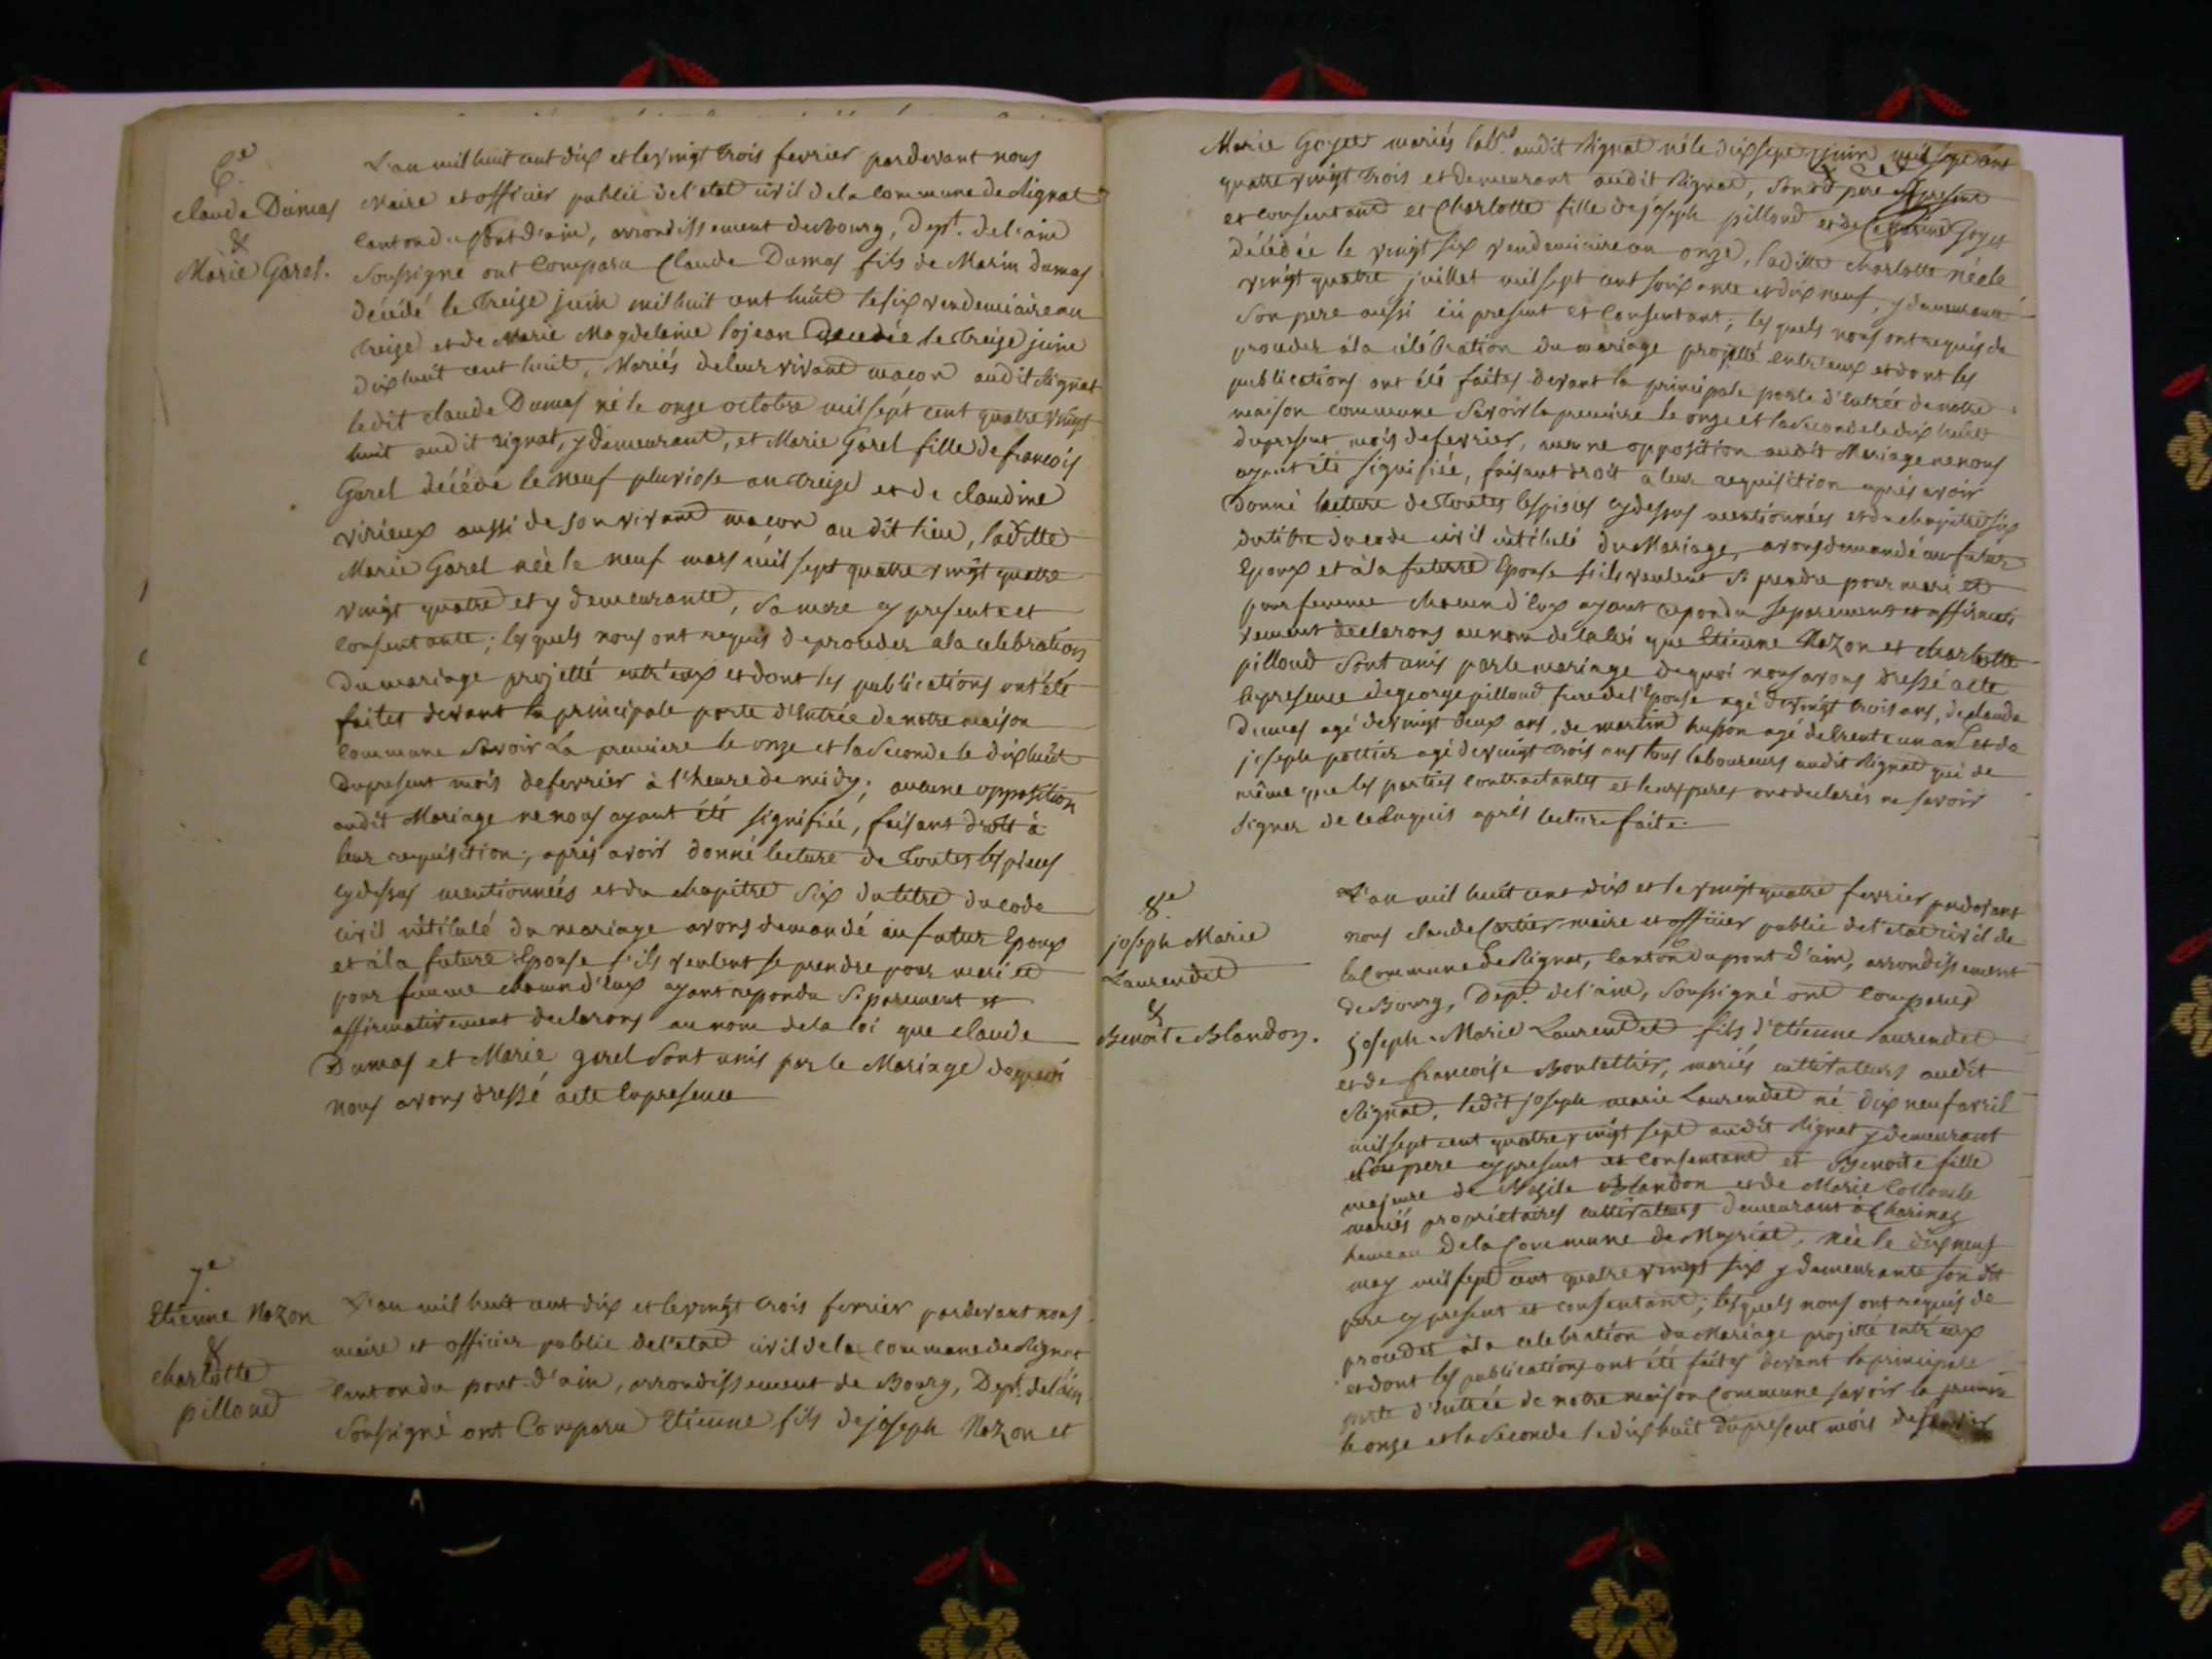 6.e
Claude Dumas
&
Marie Garel.
L'an mil huit cent dix et le vingt trois fevrier pardevant nous
Maire et officier public de l'etat civil de la commune de Rignat
Canton du pont d'ain, arrondissement de Bourg, Dept. de l'ain
Soussigné ont Comparu Claude Dumas fils de Marin Dumas
décédé le treize juin mil huit cent huit le six vendemiaire an
treize et de Marie Magdeleine lojean decedée le treize juin
dix huit cent huit, Mariés de leur vivant macon audit Rignat
ledit Claude Dumas né le onze octobre mil sept cent quatre vingt
huit audit rignat, y demeurant, et Marie Garel fille de françois
Garel décédé le neuf pluviose an treize et de claudine
virieux aussi de son vivant macon au dit lieu, laditte
Marie Garel née le neuf mars mil sept quatre vingt quatre
vingt quatre et y demeurante, sa mere cy presente et
consentante; lesquels nous ont requis de proceder a la celebration
du mariage projetté entr'eux et dont les publications ont été
faites devant la principale porte d'Entrée de notre maison
Commune Savoir La premiere le onze et la Seconde le dix huit
du present mois de fevrier à l'heure de midy; aucune opposition
audit Mariage ne nous ayant été signifiée, faisant droit à
leur requisition; après avoir donné lecture de toutes les pieces
cydessus mentionnées et du chapitre Six du titre du code
civil intitulé du mariage avons demandé au futur Epoux
et à la future Epouse s'ils veulent se prendre pour mari et
pour femme chacun d'eux ayant repondu Separement et
affirmativement declarons au nom de la loi que claude
Dumas et Marie garel Sont unis par le Mariage de quoi
nous avons dressé acte En presence
7.e
Etienne Nazon
&
charlotte
pilloud
L'an mil huit cent dix et le vingt trois fevrier pardevant nous
maire et officier public de l'etat civil de la commune de Rignat
Canton du pont d'ain, arrondissement de Bourg, Dept. de l'ain
Soussigné ont Comparu Etienne fils de joseph Nazon et
Marie Goyet mariés lab.rs audit Rignat né le dix sept juin mil sept cent
quatre vingt trois et demeurant audit Rignat, Son dt pere present
et consentant et Charlotte fille de joseph pilloud et de Goyet
décédée le vingt six vendemiaire an onze, laditte charlotte née le
vingt quatre juillet mil sept cent soixante et dix neuf, y demeurante
Son pere aussi ici present et consentant; les quels nous ont requis de
proceder à la célébration du mariage projetté entr'eux et dont les
publications ont été faites devant la principale porte d'Entrée de notre
maison commune Savoir la premiere le onze et la Seconde le dix huit
du present mois de fevrier, aucune opposition audit Mariage ne nous
ayant été signifiée, faisant droit a leur requisition après avoir
Donné lecture de toutes les pieces cydessus mentionnées et du chapitre six
du titre du code civil intitulé du Mariage, avons demandé au futur
Epoux et à la future Epouse s'ils veulent se prendre pour mari et
pour femme chacun d'eux ayant repondu separement et affirmati
vement declarons au nom de la loi que Etienne Nazon et charlotte
pilloud Sont unis par le mariage de quoi nous avons dressé acte
En presence de george pilloud frere de l'Epouse agé de vingt trois ans, de claude
Dumas agé de vingt deux ans, de martin husson agé de trente un an et de
joseph pottier agé de vingt trois ans tous laboureurs audit Rignat qui de
même que les parties contractantes et leurs peres ont declarés ne savoir
Signer de ce Enquis après lecture faite.
8.e
joseph Marie
Laurendet
&
Benoite Blandon.
L'an mil huit cent dix et le vingt quatre fevrier pardevant
nous claude Cartier maire et officier public de l'etat civil de
la Commune de Rignat, Canton du pont d'ain, arrondissement
de Bourg, Dept. de l'ain, Soussigné ont comparus
joseph Marie Laurendet fils d'Etienne laurendet
et de francoise Bontallier, mariés cultivateurs audit
Rignat, ledit joseph marie Laurendet né dix neuf avril
mil sept cent quatre vingt sept audit Rignat y demeurant
Son pere cy present et consentant et Benoite fille
majeure de Basile Blandon et de Marie Collomb
mariés propriétaires cultivateurs demeurant à Charinas
hameau de la Commune de Meyriat, née le dix neuf
may mil sept cent quatre vingt six y demeurante son dit
pere cy present et consentant; lesquels nous ont requis de
proceder à la celebration du Mariage projetté entr'eux
et dont les publications ont été faites devant la principale
porte d'entrée de notre maison Commune savoir la premiere
le onze et la Seconde le dix huit du present mois de fevrier